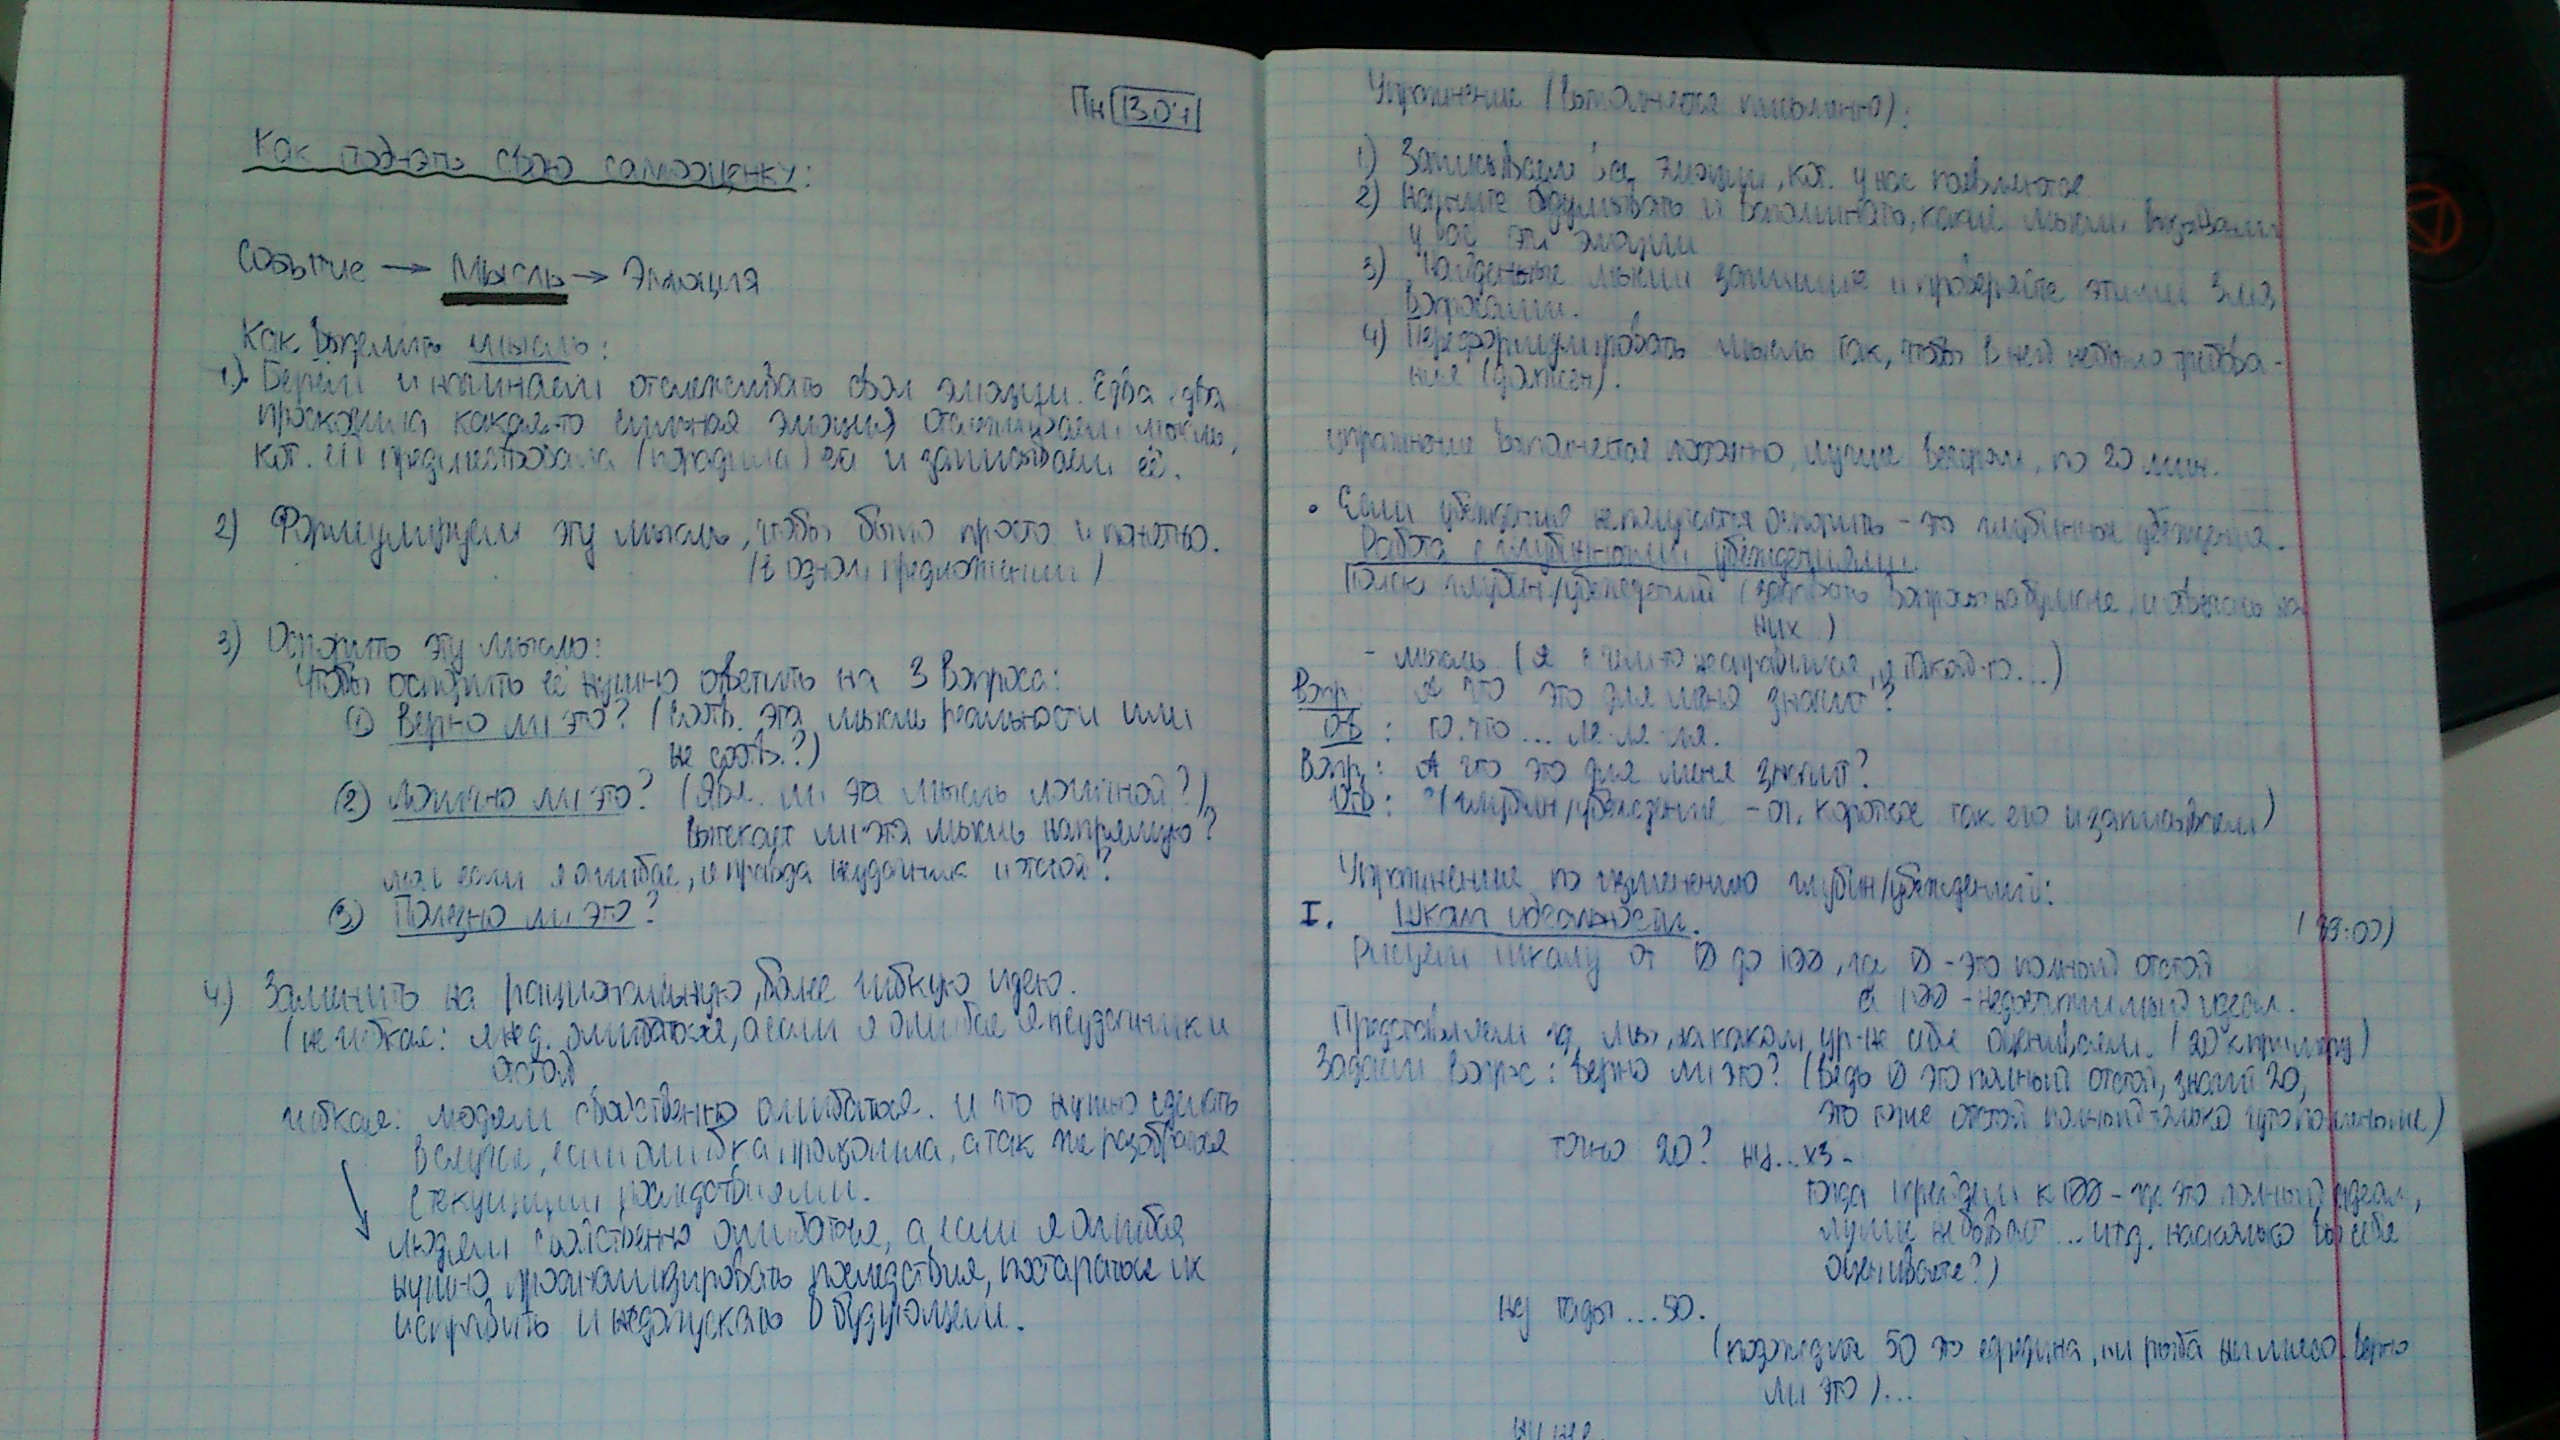 Пн 13.01
Как поднять свою самооценку:
Событие → Мысль → Эмоция
Как выделить мысль:
1). Берём и начинаем отслеживать свои эмоции. Едва едва
проскочила какая-то сильная эмоция отслеживаем мысль,
кот. ей предшествовала (породила) её и записываем её.
2) Формулируем эту мысль, чтобы было просто и понятно.
(в одном предложении)
3) Оспорить эту мысль:
Чтобы оспорить её нужно ответить на 3 вопроса:
① Верно ли это? (соотв. эта мысль реальности или
не соотв.?)
② Логично ли это? (Явл. ли эта мысль логичной?)
вытекает ли эта мысль напрямую?
если я ошибаюсь, я правда неудачник и отстой?
③ Полезно ли это?
4) Заменить на рациональную, более гибкую идею.
(не гибкая: я не д. ошибаться, а если я ошибся я неудачник и
отстой
гибкая: людям свойственно ошибаться. и что нужно сделать
в случае, если ошибка произошла, а так же разобраться
с текущими последствиями.
↓ людям свойственно ошибаться, а если я ошибся
нужно проанализировать последствия, постараться их
исправить и недопускать в будующем.
Упражнение (выполняется письменно):
1) Записываем все эмоции, кот. у нас появляются
2) Начните обдумывать и вспоминать, какие мысли вызвали
у вас эти эмоции
3) Найденные мысли запишите и проверяйте этими 3мя
вопросами.
4) Переформулировать мысль так, чтобы в ней небыло требова-
ния (должен).
упражнение выполняется, лучше вечером, по 20 мин.
• Если убеждение неполучается оспорить - это глубинное убеждение.
Работа с глубинными убеждениями
Поиск глубин/убеждений (задавать вопросы на бумаге, и отвечать на
них)
- мысль (я с чем-то несправился, я такой-то...)
Вопр: А что это для меня значит?
Отв: то, что ... ля-ля-ля.
Вопр.: А что это для меня значит?
Отв: (глубин/убеждение - оч. короткое так его и записываем)
Упражнение по изменению глубин/убеждений:
I. Шкала идеальности. (39:00)
Рисуем шкалу от 0 до 100, где 0 - это полный отстой
а 100 - недостижимый идеал.
Представляем гд. мы, на каком ур-не себя оцениваем. (20 к примеру)
Задаём вопрос: верно ли это? (ведь 0 это полный отстой, значит 20,
это тоже отстой полный только чуто поменьше)
точно 20? ну...хз-
тогда перейдем к 100 - где это полный идеал,
лучше не бывает ... и тд. насколько вы себя
оцениваете?)
ну тады ... 50.
(подождите 50 это середина, ни рыба ни мясо. верно
ли это)...